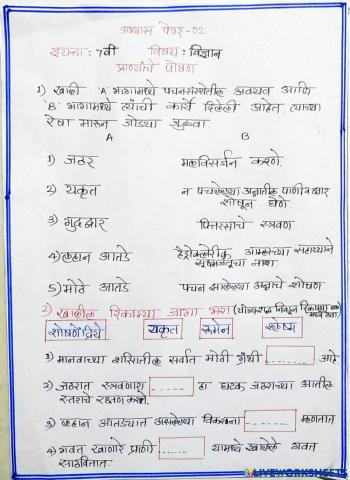 अभ्यास पेपर - 02
इयत्ता : 7वी विषय : विज्ञान
प्राण्यांचे पोषण
1) खाली 'A' भागामध्ये पचनसंस्थेतील अवयव आणि
'B' भागामध्ये त्यांची कार्ये दिलेली आहेत त्याच्या
रेषा मारून जोड्या जुळवा.
A B
1) जठर मलविसर्जन करणे.
2) यकृत न पचलेल्या अन्नातील पाणी व क्षार शोषून घेणे
3) गुदद्वार पित्तरसाचे स्त्रवण
4) लहान आतडे हैड्रोक्लोरीक आम्लाच्या सहाय्याने सूक्ष्मजंतूचा नाश
5) मोठे आतडे पचन झालेल्या अन्नाचे शोषण
2) खालील रिकाम्या जागा भरा (योग्य शब्द निवडून रिकाम्या जागे मध्ये ठेवा)
शोषणेंद्रिये यकृत रूमेन श्लेष्म
1) मानवाच्या शरीरातील सर्वात मोठी ग्रंथी ------ आहे
2) जठरात स्त्रवणारा ------ हा घटक जठराच्या आतील
स्तराचे रक्षण करतो.
3) लहान आतड्यात असलेल्या विलयांना ------ म्हणतात
4) गवत खाणारे प्राणी ------ यामध्ये खाल्लेले गवत
साठवितात.
LIVEWORKSHEETS